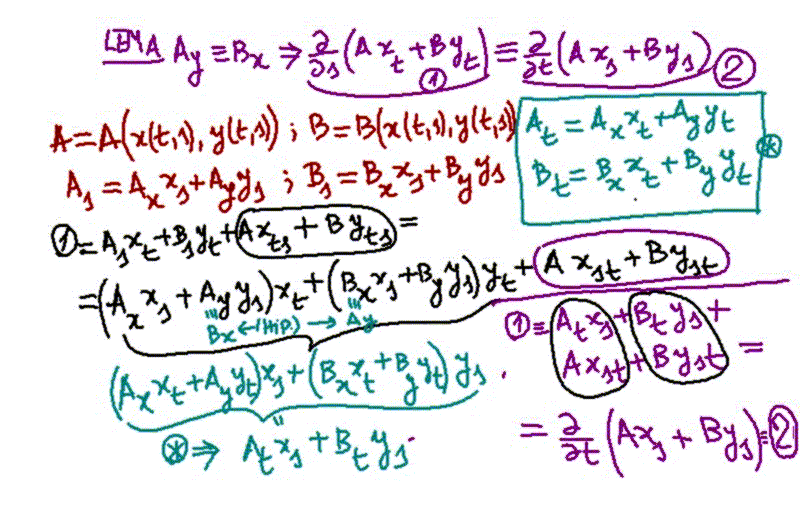 LEMA A_y ≡ B_x ⇒ ∂/∂s (A x_t + B y_t) ≡ ∂/∂t (A x_s + B y_s)
① ②
A = A(x(t,s), y(t,s)) ; B = B(x(t,s), y(t,s))
A_s = A_x x_s + A_y y_s ; B_s = B_x x_s + B_y y_s
A_t = A_x x_t + A_y y_t
B_t = B_x x_t + B_y y_t
(*)
① = A_s x_t + B_s y_t + A x_ts + B y_ts =
= (A_x x_s + A_y y_s) x_t + (B_x x_s + B_y y_s) y_t + A x_st + B y_st
B_x ← (HIP.) → A_y
(A_x x_t + A_y y_t) x_s + (B_x x_t + B_y y_t) y_s .
(*) ⇒ A_t x_s + B_t y_s .
① ≡ A_t x_s + B_t y_s +
A x_st + B y_st =
= ∂/∂t (A x_s + B y_s) ≡ ②